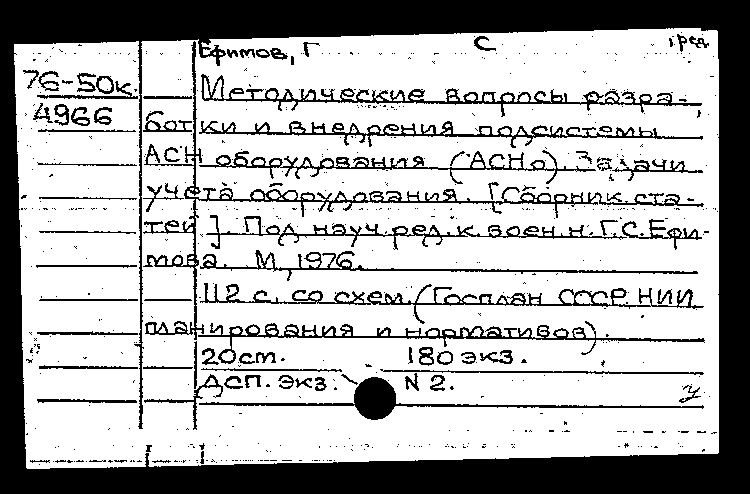 Ефимов, Г С ред.
76-50к. Методические вопросы разра-
4966 ботки и внедрения подсистемы
АСН оборудования (АСНо). Задачи
учета оборудования. [Сборник ста-
тей]. Под науч.ред.к.воен.н.Г.С.Ефи-
мова. М., 1976.
112 с. со схем. (Госплан СССР. НИИ
планирования и нормативов).
20см. 180 экз.
ДСП. Экз. N 2.
у